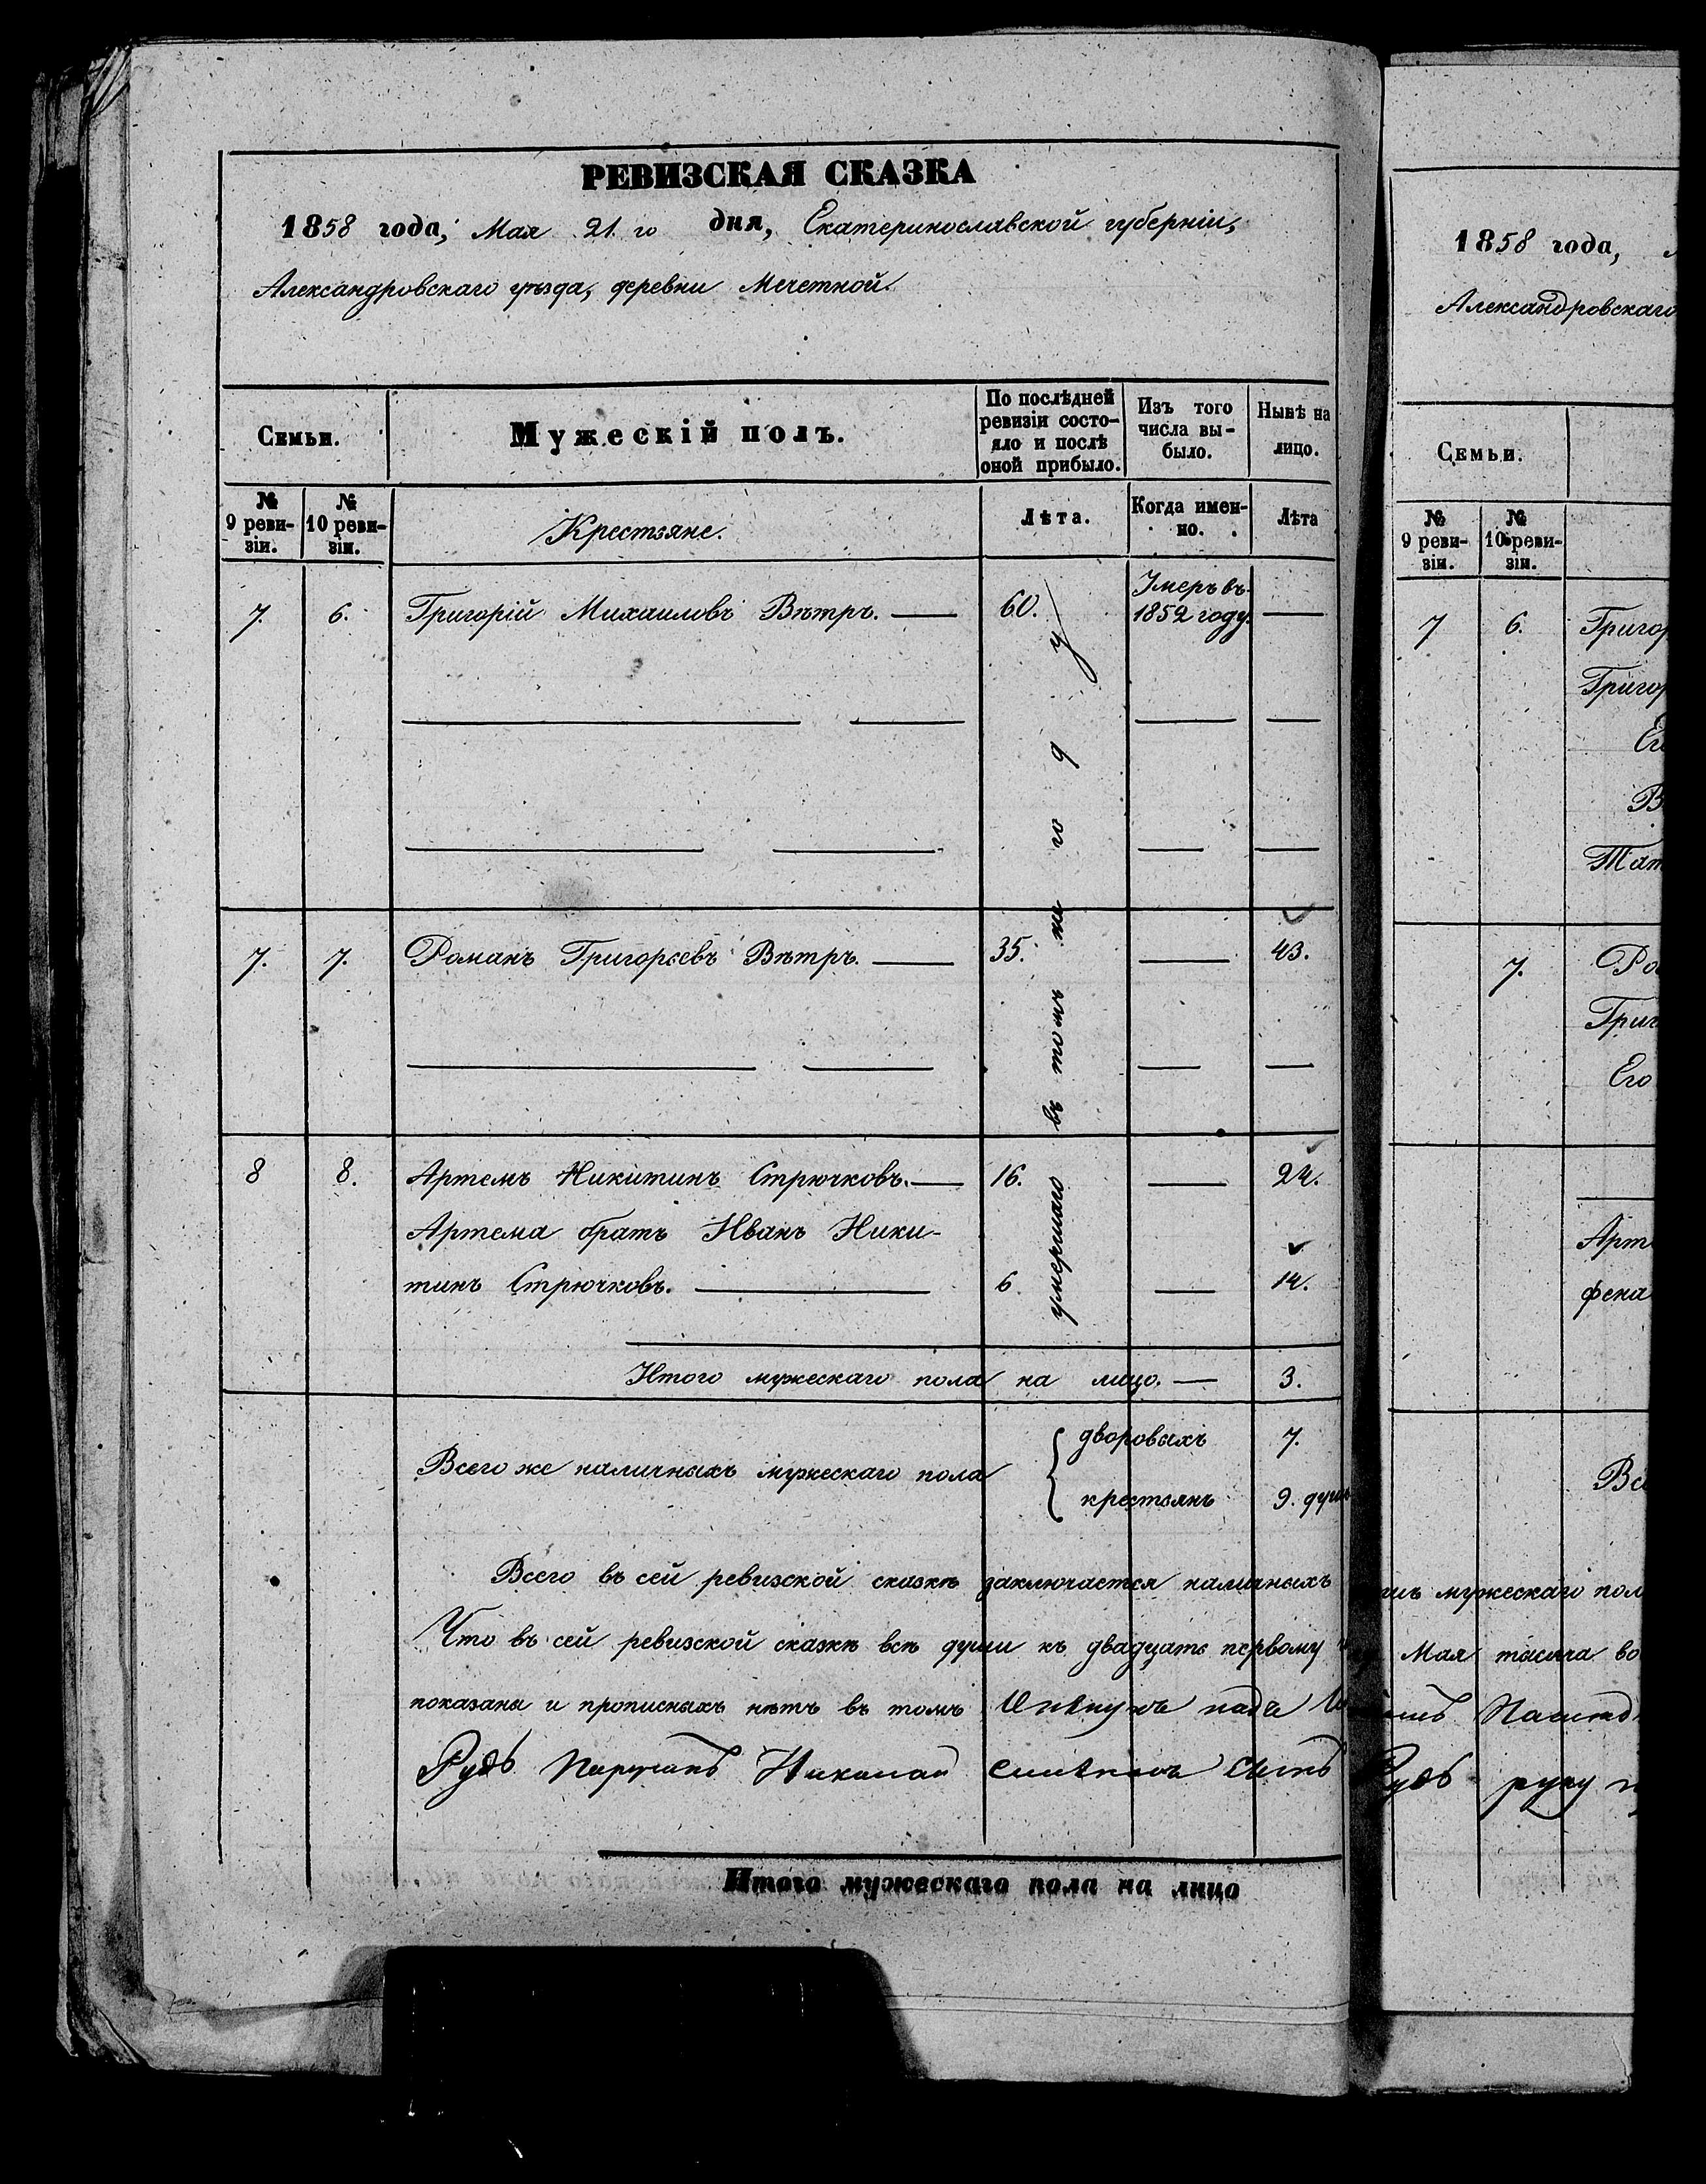 РЕВИЗСКАЯ СКАЗКА
1858 года, Мая 21 го дня, Екатеринославской губерніи,
Александровскаго уѣзда, деревни Мечетной
Семьи.
Мужескій полъ.
По послѣдней
ревизіи состо-
яло и послѣ
оной прибыло.
Изъ того
числа вы-
было.
Нынѣ на
лицо.
№
9 реви-
зіи.
№
10 реви-
зіи.
Крестьяне.
Лѣта.
Когда имен-
но.
Лѣта
7. 6. Григорій Михаиловъ Вѣтръ. — 60. Умеръ въ
1852 году. —
7. 7. Романъ Григорьевъ Вѣтръ. — 35. — 43.
8 8. Артемъ Никитинъ Стрючковъ. — 16. — 24.
Артема братъ Иванъ Ники-
тинъ Стрючковъ. — 6. — 14.
умершаго въ томъ
Итого мужескаго пола на лицо. — 3.
Всего же наличныхъ мужескаго пола
дворовыхъ 7.
крестьянъ 9. душъ
Всего въ сей ревизской сказкѣ заключается наличныхъ
Что въ сей ревизской сказкѣ всѣ души къ двадцать первому
показаны и прописныхъ нѣтъ въ томъ
Рудь Николай сынъ
Итого мужескаго пола на лицо
1858 года,
Александровскаго
Семьи.
№
9 реви-
зіи.
№
10 реви-
зіи.
7 6. Григор
Григор
Ег
В
Тат
7. Ро
Григ
Его
Арт
фена
Все
мужескаго пол
Мая тысяча во
Рудь руку